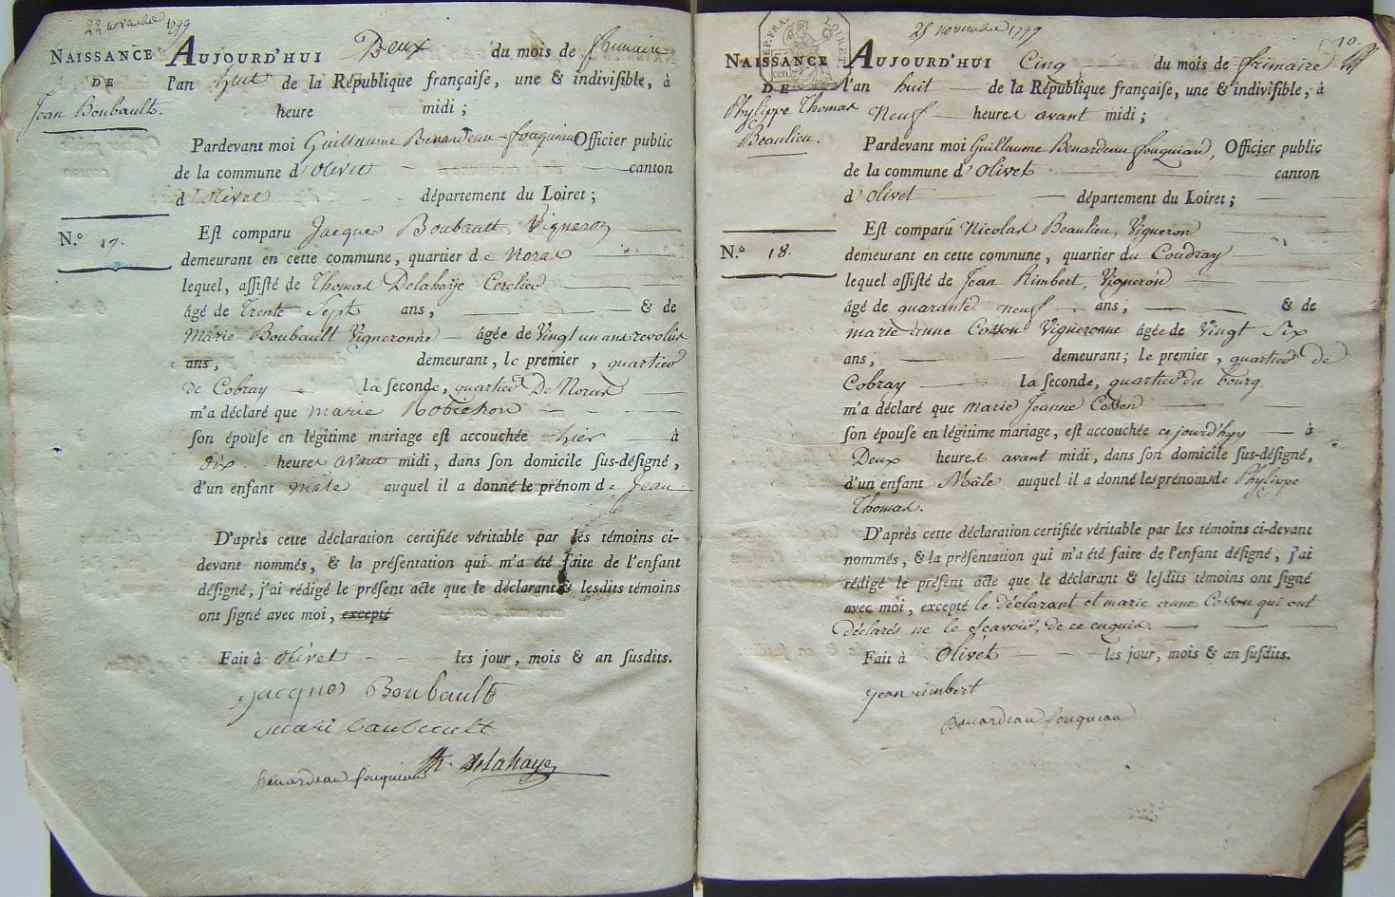 22 novembre 1799
NAISSANCE
DE
Jean Boubault.
N.º 17.
AUJOURD'HUI Deux du mois de frimaire
l'an huit de la République françaiſe, une & indiviſible, à
heure midi ;
Pardevant moi Guillaume Benardeau fouquiau Officier public
de la commune d'olivet canton
d'olivet département du Loiret ;
Eſt comparu Jacques Boubault Vigneron
demeurant en cette commune, quartier de Noras
lequel, aſſiſté de Thomas Delahaÿe Cerclier
âgé de Trente Sept ans, & de
Marie Boubault Vigneronne âgée de Vingt un ans revolus
ans, demeurant, le premier, quartier
de Cobray la ſeconde, quartier De Noras
m'a déclaré que marie Robichon
ſon épouſe en légitime mariage eſt accouchée hier à
dix heures avant midi, dans ſon domicile ſus-déſigné,
d'un enfant male auquel il a donné le prénom de Jean
D'après cette déclaration certifiée véritable par les témoins ci-
devant nommés, & la préſentation qui m'a été faite de l'enfant
déſigné, j'ai rédigé le préſent acte que le déclarant & leſdits témoins
ont ſigné avec moi, excepté
Fait à olivet les jour, mois & an ſuſdits.
jacques Boubault
marie baubeault
benardeau fouquiau Th. delahaye
25 novembre 1799
10.
NAISSANCE
DE
Phylippe Thomas
Beaulieu.
N.º 18.
AUJOURD'HUI Cinq du mois de frimaire
l'an huit de la République françaiſe, une & indiviſible, à
Neuf heures avant midi ;
Pardevant moi Guillaume Benardeau fouquiau, Officier public
de la commune d'Olivet canton
d'olivet département du Loiret ;
Eſt comparu Nicolas Beaulieu, Vigneron
demeurant en cette commune, quartier du Coudray
lequel aſſiſté de Jean Rimbert, Vigneron
âgé de quarante neuf ans, & de
marie anne Cosson Vigneronne âgée de Vingt Six
ans, demeurant ; le premier, quartier de
Cobray la ſeconde, quartier du bourg
m'a déclaré que marie Jeanne Cosson
ſon épouſe en légitime mariage, eſt accouchée ce jourd'hÿ à
Deux heures avant midi, dans ſon domicile ſus-déſigné,
d'un enfant Mâle auquel il a donné les prénoms de Phylippe
Thomas.
D'après cette déclaration certifiée véritable par les témoins ci-devant
nommés, & la préſentation qui m'a été faite de l'enfant déſigné, j'ai
rédigé le préſent acte que le déclarant & leſdits témoins ont ſigné
avec moi, excepté le déclarant et marie anne Cosson qui ont
déclarés ne le sçavoir, de ce enquis.
Fait à Olivet les jour, mois & an ſuſdits.
jean rimbert
benardeau fouquiau